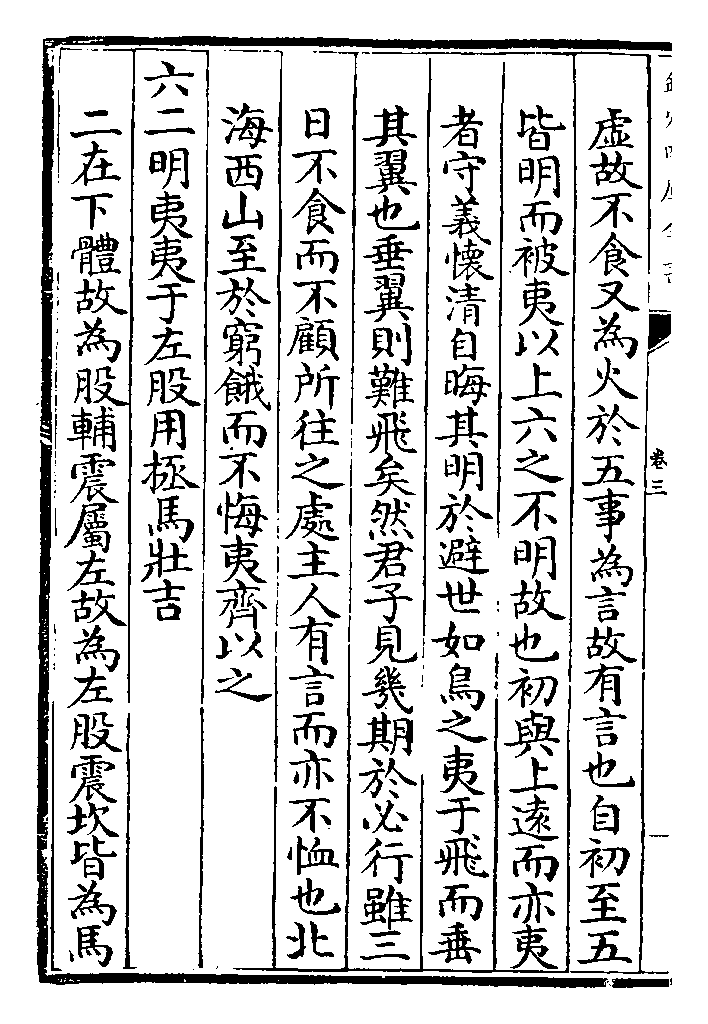 虚故不食又為火於五事為言故有言也自初至五
皆明而被夷以上六之不明故也初與上逺而亦夷
者守義懐清自晦其明於避世如鳥之夷于飛而垂
其翼也垂翼則難飛矣然君子見幾期於必行雖三
日不食而不顧所往之處主人有言而亦不恤也北
海西山至於窮餓而不悔夷齊以之
六二明夷夷于左股用拯馬壯吉
二在下體故為股輔震屬左故為左股震坎皆為馬
卷三